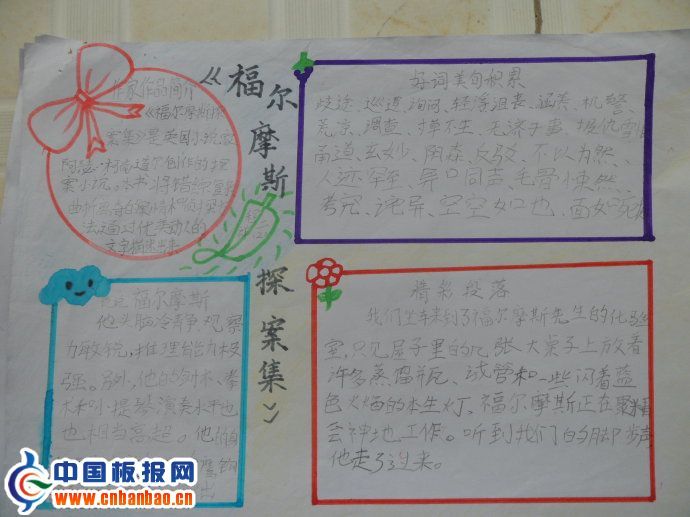 《福尔摩斯探案集》
作家作品简介
《福尔摩斯探
案集》是英国小说家
阿瑟·柯南道尔创作的探
案小说。本书将错综复杂
曲折离奇的
法通过优美动人的
文字描述出来
好词美句积累
歧途、巡逻、询问、轻蔑沮丧、逼养、机警、
荒凉、调查、无济于事、
甬道、玄妙、阴森、反驳、不以为然、
人迹罕至、异口同声、毛骨悚然、
考究、诧异、空空如也、面如死
福尔摩斯
他头脑冷静、观察
力敏锐，推理能力极
强。另外，他的剑术、拳
术和小提琴演奏水平也
也相当高超。他
鹰钩
出
精彩段落
我们坐车来到了福尔摩斯先生的化验
室，只见屋子里的几张大桌子上放着
许多蒸馏瓶、试管和一些闪着蓝
色火焰的本生灯，福尔摩斯正在聚精
会神地工作。听到我们的脚步声
他走了过来。
中国板报网
www.cnbanbao.cn